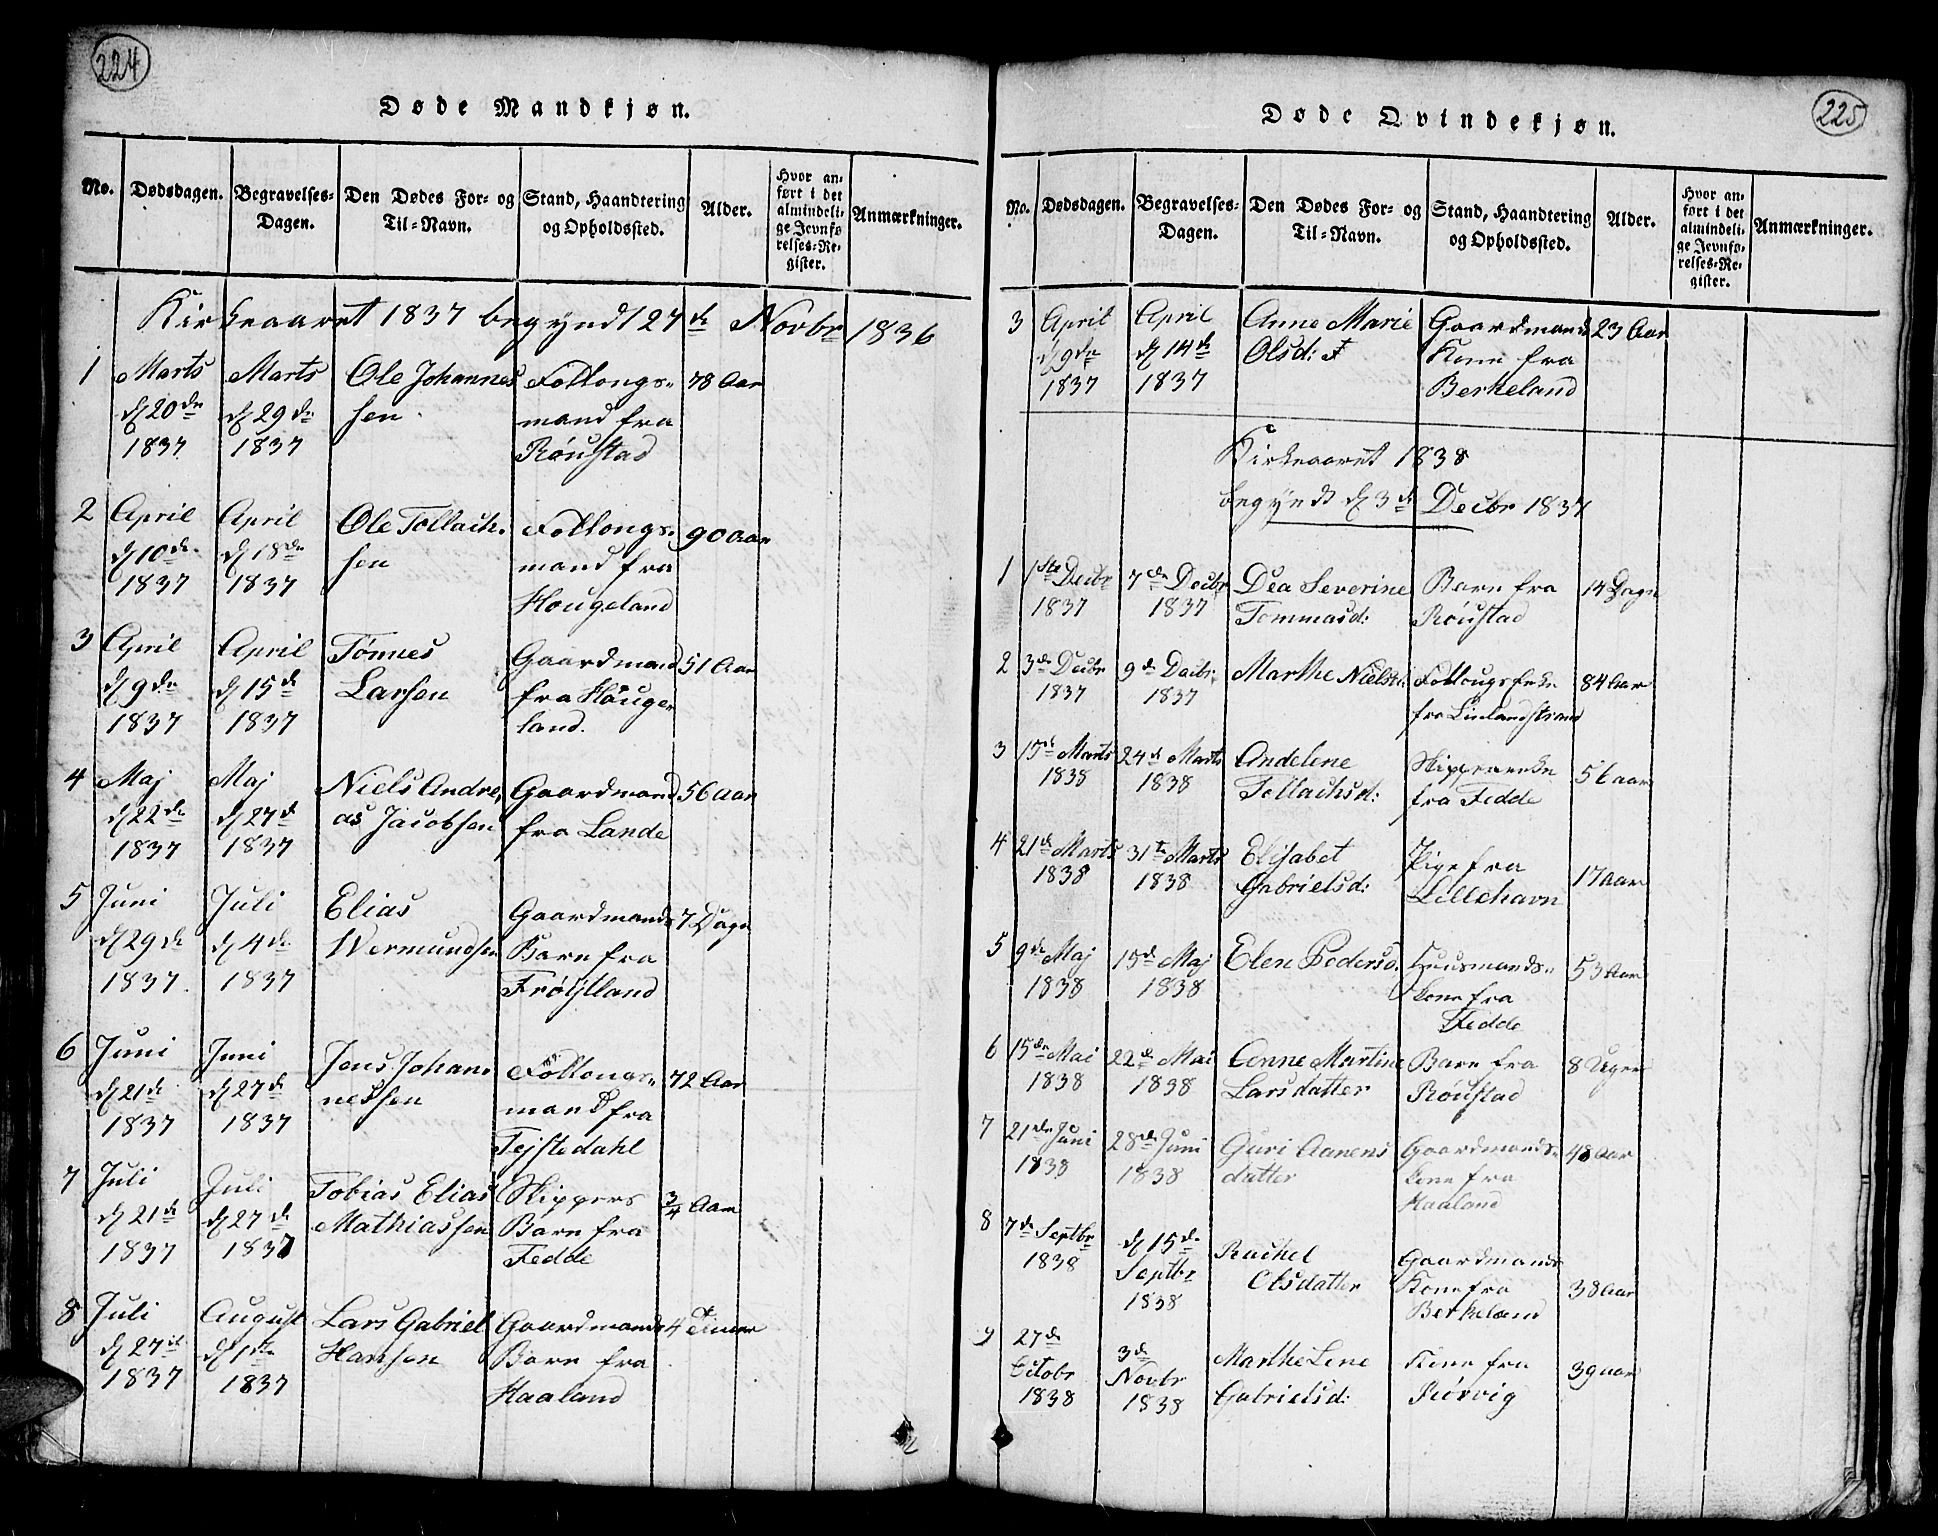 224
Døde Mandkjøn.
No. Dødsdagen. Begravelses-Dagen. Den Dødes For- og Til-Navn. Stand, Haandtering og Opholdssted. Alder. Hvor anført i det almindelige Jevnførelses-Register. Anmærkninger.
Kirkeaaret 1837 begyndt 27de Novbr 1836
1 Marts Marts Ole Johannes Follougs- 78 Aar
d 20de d 29de sen mand fra
1837 1837 Röustad
2 April April Ole Tollach- Follougs- 90 Aar
d 10de d 18de sen mand fra
1837 1837 Hougeland
3 April April Tønnes Gaardmand 51 Aar
d 9de d 15de Larsen fra Houge-
1837 1837 land.
4 Maj Maj Niels Andre- Gaardmand 56 Aar
d 22de d 27de as Jacobsen fra Lande
1837 1837
5 Juni Juli Elias Gaardmands 7 Dage
d 29de d 4de Wermundsen Barn fra
1837 1837 Fröitland
6 Juni Juni Jens Johan- Follougs- 72 Aar
d 21de d 27de nessen mand fra
1837 1837 Tejstedahl
7 Juli Juli Tobias Elias Skippers 3/4 Aar
d 21de d 27de Mathiassen Barn fra
1837 1837 Fedde
8 Juli August Lars Gabriel Gaardmands 4 Timer
d 27de d 1ste Hansen Barn fra
1837 1837 Haaland
225
Døde Qvindekjøn.
No. Dødsdagen. Begravelses-Dagen. Den Dødes For- og Til-Navn. Stand, Haandtering og Opholdssted. Alder. Hvor anført i det almindelige Jevnførelses-Register. Anmærkninger.
3 April April Anne Marie Gaardmands 23 Aar
d 9de d 14de Olsd: Kone fra
1837 1837 Berkeland
Kirkeaaret 1838
begyndt d 3de Decbr 1837
1 1ste Decbr 7de Decbr Dea Severine Barn fra 14 Dage
1837 1837 Tommasd: Röustad
2 3de Decbr 9de Decbr Marthe Nielsd: Follougsenke 84 Aar
1837 1837 fra Lindlandstrand
3 15de Marts 24de Marts Andelene Skipperenke 56 Aar
1838 1838 Tollachsd: fra Fedde
4 21de Marts 31te Marts Elisabet Pige fra 17 Aar
1838 1838 Gabrielsd: Lillehavn
5 9de Maj 15de Maj Elen Pedersd. Huusmands- 53 Aar
1838 1838 kone fra
Fedde
6 15de Mai 22de Mai Anne Martine Barn fra 8 Uger
1838 1838 Larsdatter Röustad
7 21de Juni 28de Juni Guri Aanens Gaardmands- 48 Aar
1838 1838 datter kone fra
Haaland
8 7de Septbr d 15de Rachel Gaardmands 38 Aar
1838 Septbr Olsdatter Kone fra
1838 Berkeland
9 27de 3de Marthe Lene Kone fra 39 Aar
Octobr Novbr Gabrielsd:
1838 1838